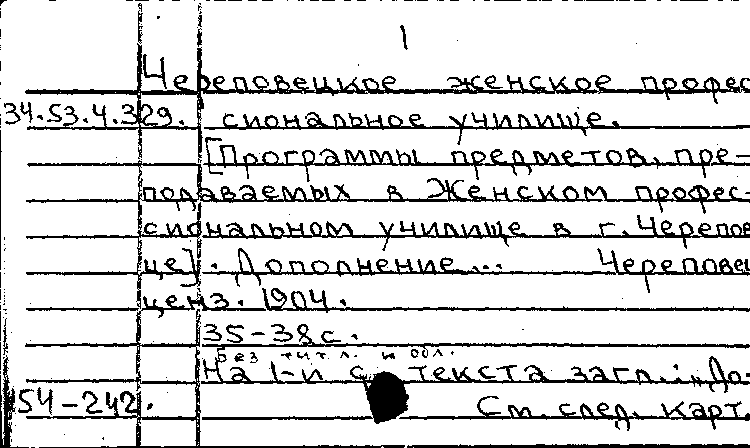 1
Череповецкое женское профес
34.53.4.329. сиональное училище.
[Программы предметов, пре-
подаваемых в Женском профес-
сиональном училище в г. Черепов
це]. Дополнение... Черепове
ценз. 1904.
35-38 с.
Без тит. л. и обл.
На 1-й с. текста загл.: „До-
54-242. См. след. карт.